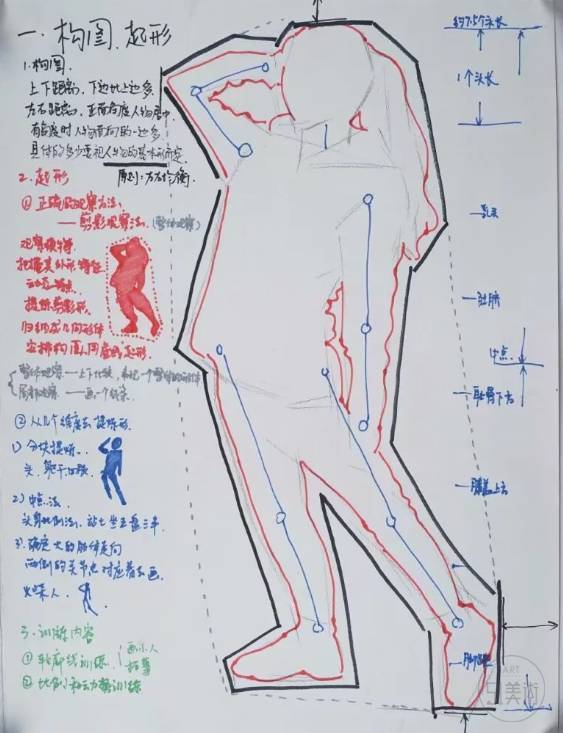 一、构图、起形
1.构图。
上下距离，下边比上边多。
左右距离，正面角度人物居中
有角度时人物面向的一边多
具体的多少要视人物的基本形而定
原则：左右均衡。
2.起形
①正确的观察方法。
——剪影观察法。(整体观察)
观察模特
把握其外形特征
动态特点
提炼剪影形。
归纳成几何形体
安排构图同后起形。
整体观察——上下比较，
局部观察——画一个
②从几个维度去提炼形。
1)分块提炼。
头、躯干四肢
2)中点法
头身比例法、站七坐五盘三半
3)确定大的肢体走向
两侧的关节点对应着去画
火柴人。
三.训练内容
①轮廓线训练
画小人
②比例和动势训练
约7.5个头长
1个头长
乳头
肚脐
中点
耻骨下方
膝盖上方
脚踝
ART
美术